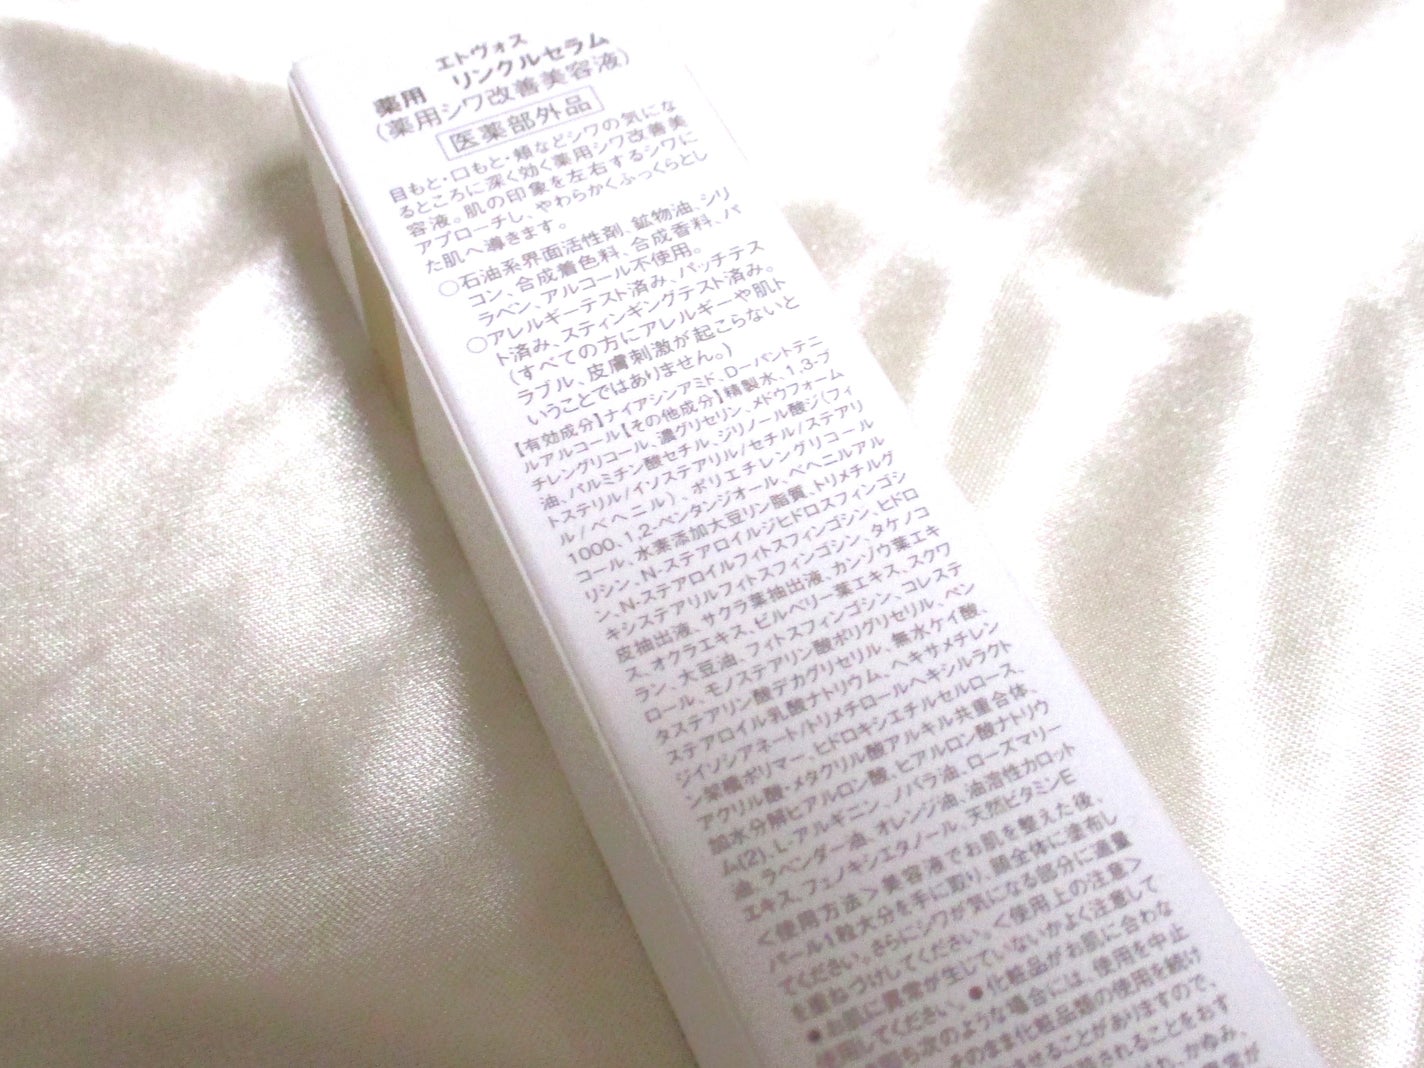 エトヴォス
薬用 リンクルセラム
(薬用シワ改善美容液)
医薬部外品
目もと・口もと・頬などシワの気にな
るところに深く効く薬用シワ改善美
容液。肌の印象を左右するシワに
アプローチし、やわらかくふっくらとし
た肌へ導きます。
○石油系界面活性剤、鉱物油、シリ
コン、合成着色料、合成香料、パ
ラベン、アルコール不使用。
○アレルギーテスト済み、パッチテス
ト済み、スティンギングテスト済み。
(すべての方にアレルギーや肌ト
ラブル、皮膚刺激が起こらないと
いうことではありません。)
【有効成分】ナイアシンアミド、D-パントテニ
ルアルコール【その他成分】精製水、1,3-ブ
チレングリコール、濃グリセリン、メドウフォーム
油、パルミチン酸セチル、ジリノール酸ジ(フィ
トステリル/イソステアリル/セチル/ステアリ
ル/ベヘニル)、ポリエチレングリコール
1000、1,2-ペンタンジオール、ベヘニルアル
コール、水素添加大豆リン脂質、トリメチルグ
リシン、N-ステアロイルジヒドロスフィンゴシ
ン、N-ステアロイルフィトスフィンゴシン、ヒドロ
キシステアリルフィトスフィンゴシン、タケノコ
皮抽出液、サクラ葉抽出液、カンゾウ葉エキ
ス、オクラエキス、ビルベリー葉エキス、スクワ
ラン、大豆油、フィトスフィンゴシン、コレステ
ロール、モノステアリン酸ポリグリセリル、ペン
タステアリン酸デカグリセリル、無水ケイ酸、
ステアロイル乳酸ナトリウム、ヘキサメチレン
ジイソシアネート/トリメチロールヘキシルラクト
ン架橋ポリマー、ヒドロキシエチルセルロース、
アクリル酸・メタクリル酸アルキル共重合体、
加水分解ヒアルロン酸、ヒアルロン酸ナトリウ
ム(2)、L-アルギニン、ノバラ油、ローズマリー
油、ラベンダー油、オレンジ油、油溶性カロット
エキス、フェノキシエタノール、天然ビタミンE
<使用方法>美容液でお肌を整えた後、
パール1粒大分を手に取り、顔全体に塗布し
てください。さらにシワが気になる部分に適量
を重ねづけしてください。<使用上の注意>
●お肌に異常が生じていないかよく注意して
使用してください。●化粧品がお肌に合わな
い即ち次のような場合には、使用を中止
そのまま化粧品類の使用を続け
させることがありますので、
されることをおす
かゆみ、